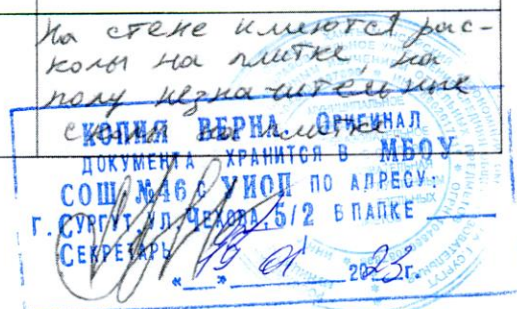 На стене имеются рас-
колы на плитке, на
полу незначительные
сколы на плитке
КОПИЯ ВЕРНА ОРИГИНАЛ
ДОКУМЕНТА ХРАНИТСЯ В МБОУ
СОШ №46 С УИОП ПО АДРЕСУ:
Г. СУРГУТ, УЛ. ЧЕХОВА, 5/2 В ПАПКЕ
СЕКРЕТАРЬ
«19» 01 2023г.